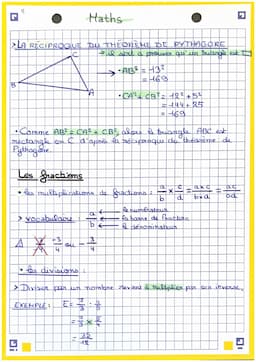 Maths
> LA RÉCIPROQUE DU THÉORÈME DE PYTHAGORE
→ il sert à prouver qu'un triangle est
C
B
A
• AB² = 13²
= 169
• CA² + CB² = 12² + 5²
= 144 + 25
= 169
• Comme AB² = CA² + CB², alors le triangle ABC est
rectangle en C d'après la réciproque du théorème de
Pythagore.
Les fractions
• les multiplications de fractions : a/b × c/d = a×c/b×d = ac/bd
> vocabulaire : a/b ← le numérateur
← la barre de fraction
← le dénominateur
-3/4 ou - 3/4
• les divisions :
> Diviser par un nombre revient à multiplier par son inverse.
EXEMPLE :